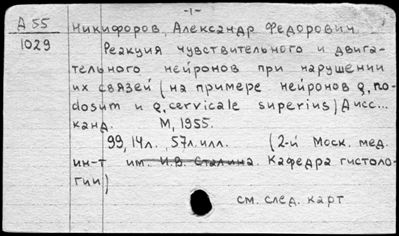 -1-
Д 55 Никифоров, Александр Федорович.
1029 Реакция чувствительного и двига-
тельного нейронов при нарушении
их связей (на примере нейронов g. no-
dosum и g. cervicale superius) Дисс...
канд. М, 1955.
99, 14л., 57л.илл. (2-й Моск. мед.
ин-т им. И.В. Сталина. Кафедра гистоло-
гии)
см. след. карт